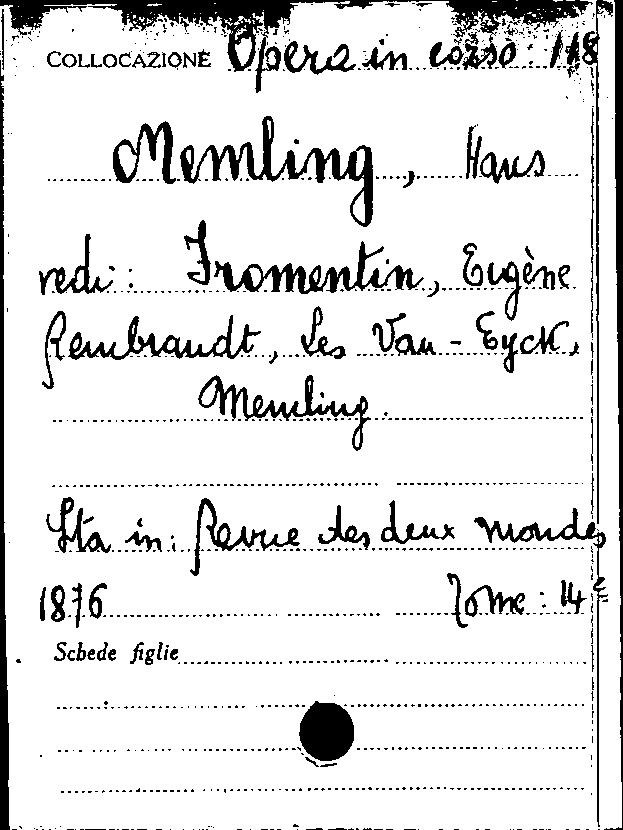 COLLOCAZIONE Opera in corso: 118
Memling, Hans
vedi: Fromentin, Eugène
Rembrandt, Les Van-Eyck,
Memling.
Sta in: Revue des deux mondes
1876 Tome: 14e
Schede figlie